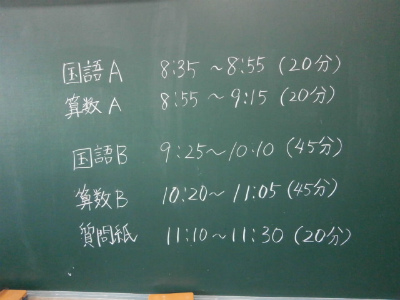 国語A 8:35 ～ 8:55 (20分)
算数A 8:55 ～ 9:15 (20分)
国語B 9:25～10:10 (45分)
算数B 10:20～ 11:05 (45分)
質問紙 11:10～11:30 (20分)